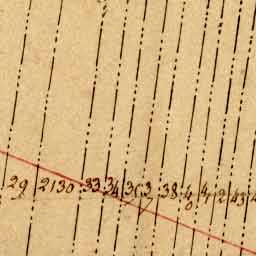 29 2130 33 34 36 37 38 40 41 42 43